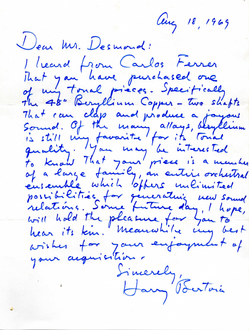 Aug 18, 1969
Dear Mr. Desmond:
I heard from Carlos Ferrer
that you have purchased one
of my tonal pieces. Specifically
the 48" Beryllium Copper - two shafts
that can clap and produce a joyous
sound. Of the many alloys, beryllium
is still my favorite for its tonal
quality. You may be interested
to know that your piece is a member
of a large family, an entire orchestral
ensemble which offers unlimited
possibilities for generating new sound
relations. Some future day, I hope,
will hold the pleasure for you to
hear its kin. Meanwhile my best
wishes for your enjoyment of
your acquisition.
Sincerely,
Harry Bertoia